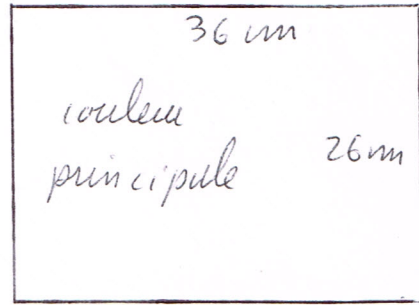 36 cm
couleur
principale
26 cm